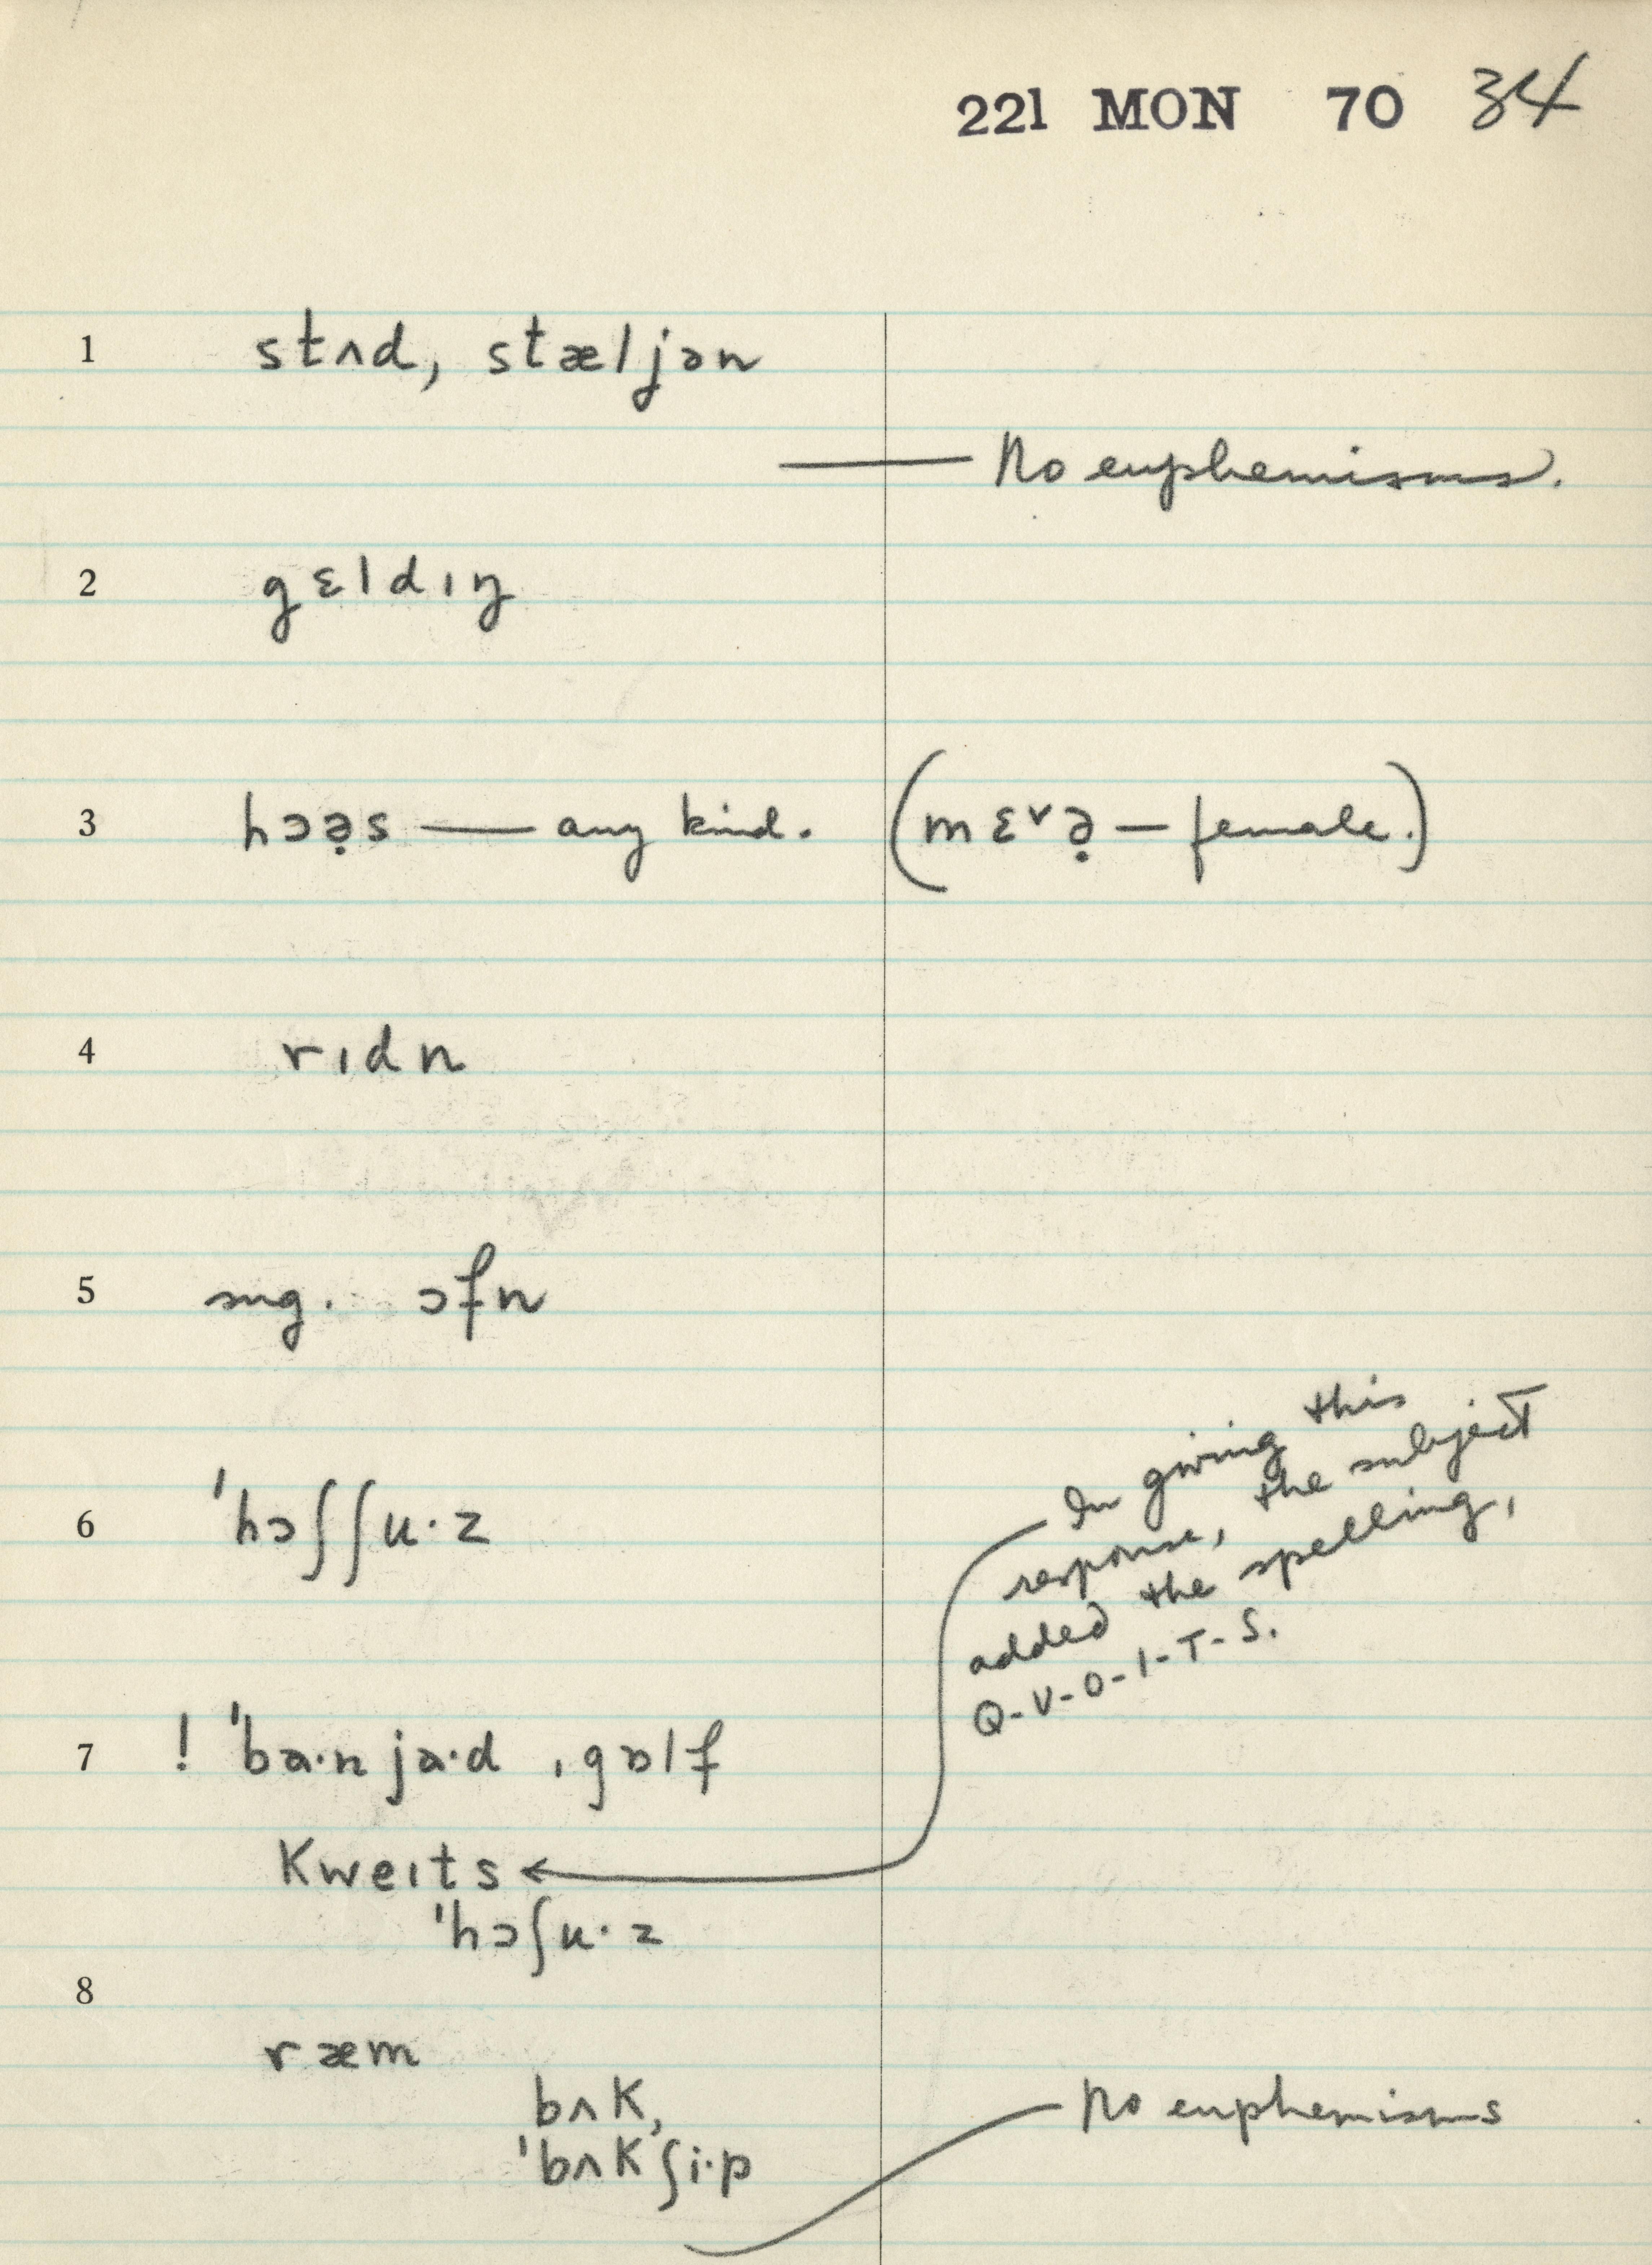 221 MON 70 34
1 stʌd, stæljən
— No euphemisms.
2 gɛldɪŋ
3 hɔə̣s — any kind. (mɛ˅ə̣ — female.)
4 rɪdn
5 sug. ɔfn
6 ˈhɔʃʃu·z
In giving this
response, the subject
added the spelling,
Q-U-O-I-T-S.
7 ! ˈba·nja·d ˌgɒlf
Kweɪts
ˈhɔʃu·z
8
ræm
bʌK,
ˈbʌKʃi·p
No euphemisms